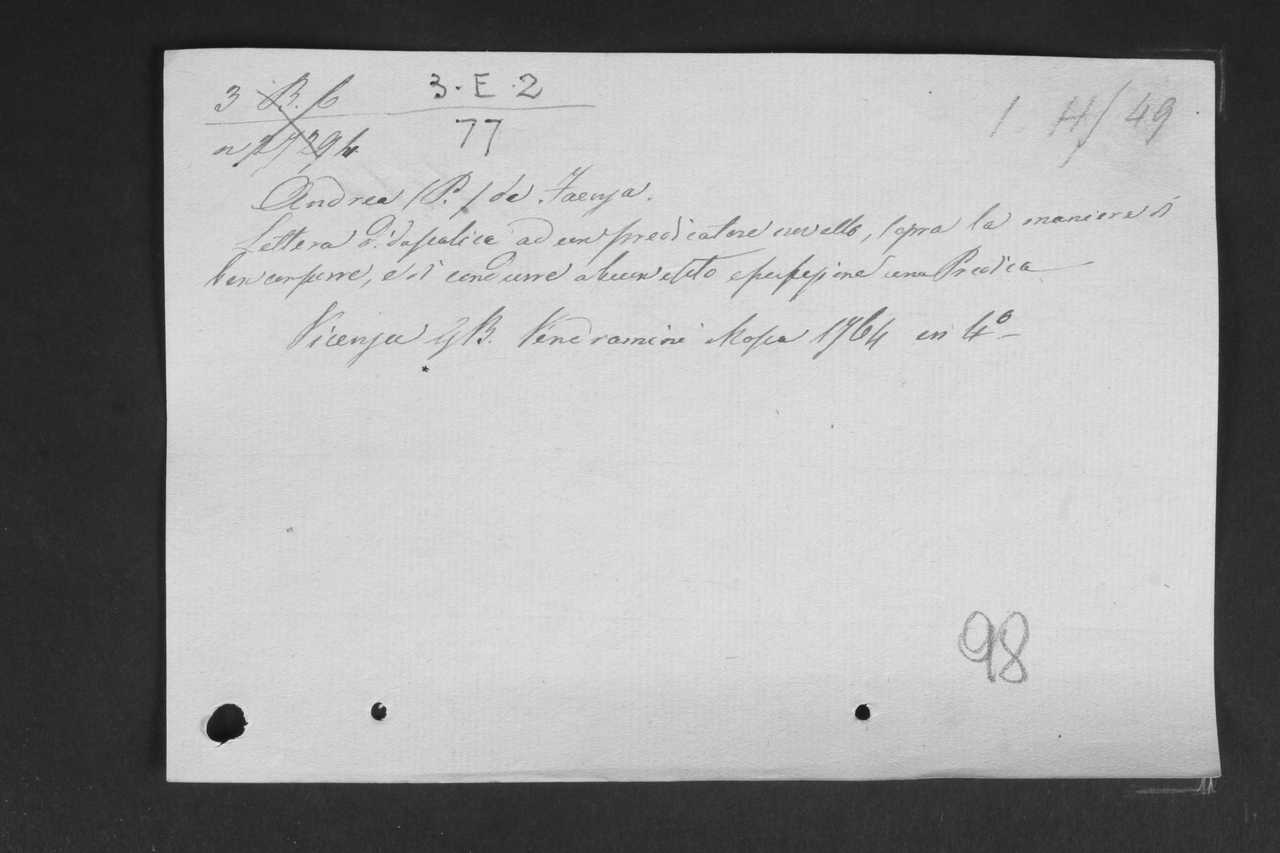 3 B. 6 3. E. 2 1 H/ 49
77
Andrea (P.) da Faenza.
Lettera Didascalica ad un predicatore novello, sopra la maniera di
ben comporre, e di condurre a buon esito e perfezione una Predica
Vicenza G B. Vendramini Mosca 1764 in 4°
98